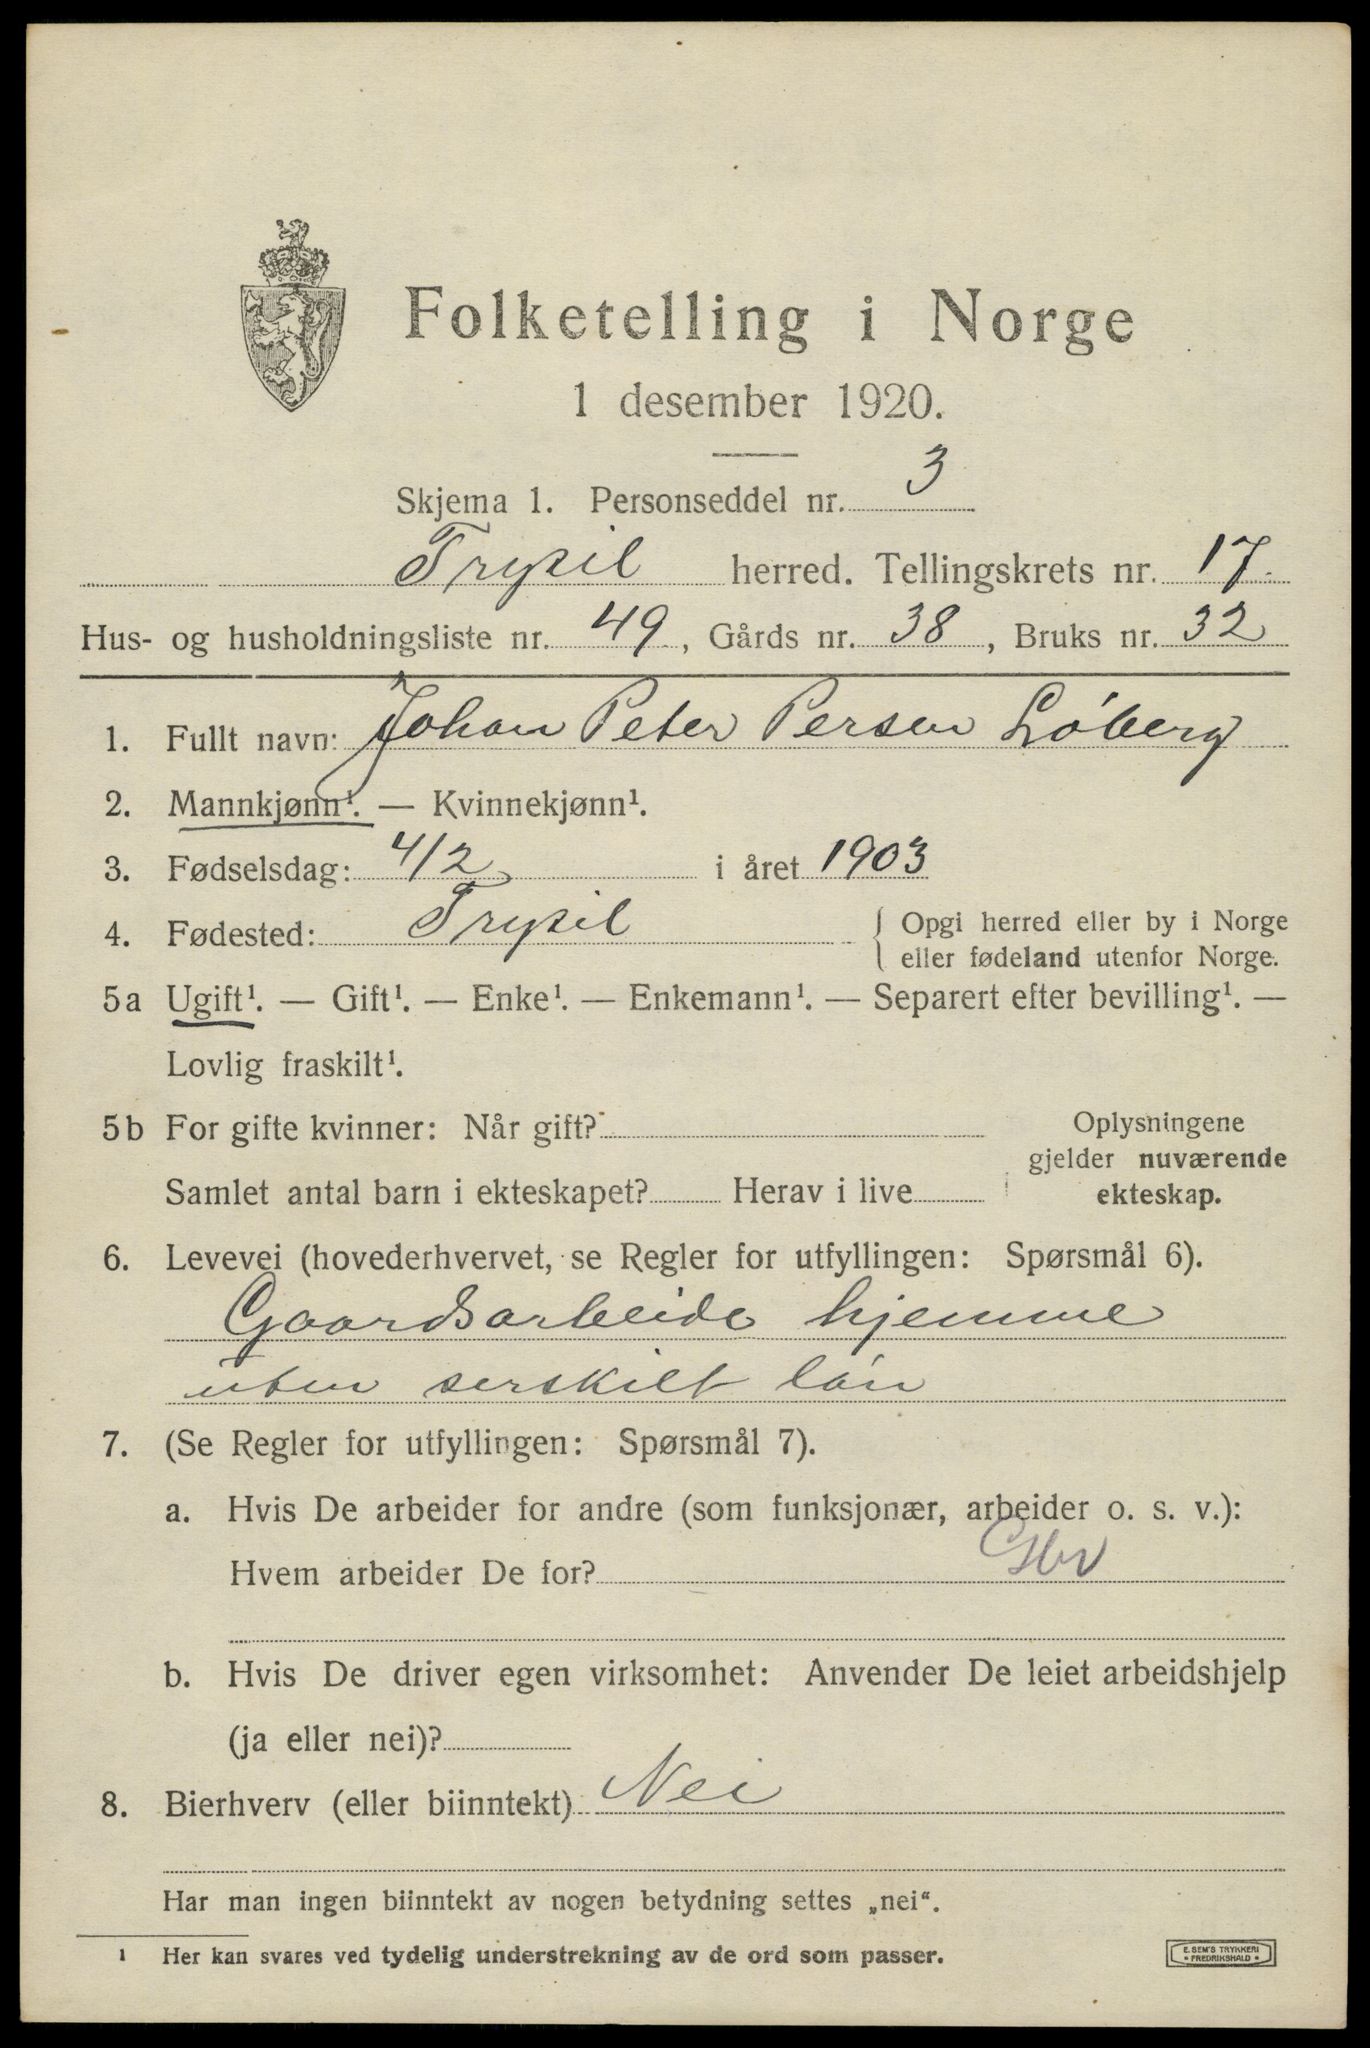 Folketelling i Norge
1 desember 1920.
Skjema 1. Personseddel nr. 3
Trysil herred. Tellingskrets nr. 17
Hus- og husholdningsliste nr. 49, Gårds nr. 38, Bruks nr. 32
1. Fullt navn: Johan Peter Persen Löberg
2. Mannkjønn¹. — Kvinnekjønn¹.
3. Fødselsdag: 4/2 i året 1903
4. Fødested: Trysil { Opgi herred eller by i Norge
eller fødeland utenfor Norge.
5a Ugift¹. — Gift¹. — Enke¹. — Enkemann¹. — Separert efter bevilling¹. —
Lovlig fraskilt¹.
5b For gifte kvinner: Når gift?
Samlet antal barn i ekteskapet? Herav i live
Oplysningene
gjelder nuværende
ekteskap.
6. Levevei (hovederhvervet, se Regler for utfyllingen: Spørsmål 6).
Gaardsarbeide hjemme
uten serskilt lön
7. (Se Regler for utfyllingen: Spørsmål 7).
a. Hvis De arbeider for andre (som funksjonær, arbeider o. s. v.):
Hvem arbeider De for?
b. Hvis De driver egen virksomhet: Anvender De leiet arbeidshjelp
(ja eller nei)?
8. Bierhverv (eller biinntekt) Nei
Har man ingen biinntekt av nogen betydning settes „nei“.
¹ Her kan svares ved tydelig understrekning av de ord som passer.
E. SEM'S TRYKKERI
• FREDRIKSHALD •